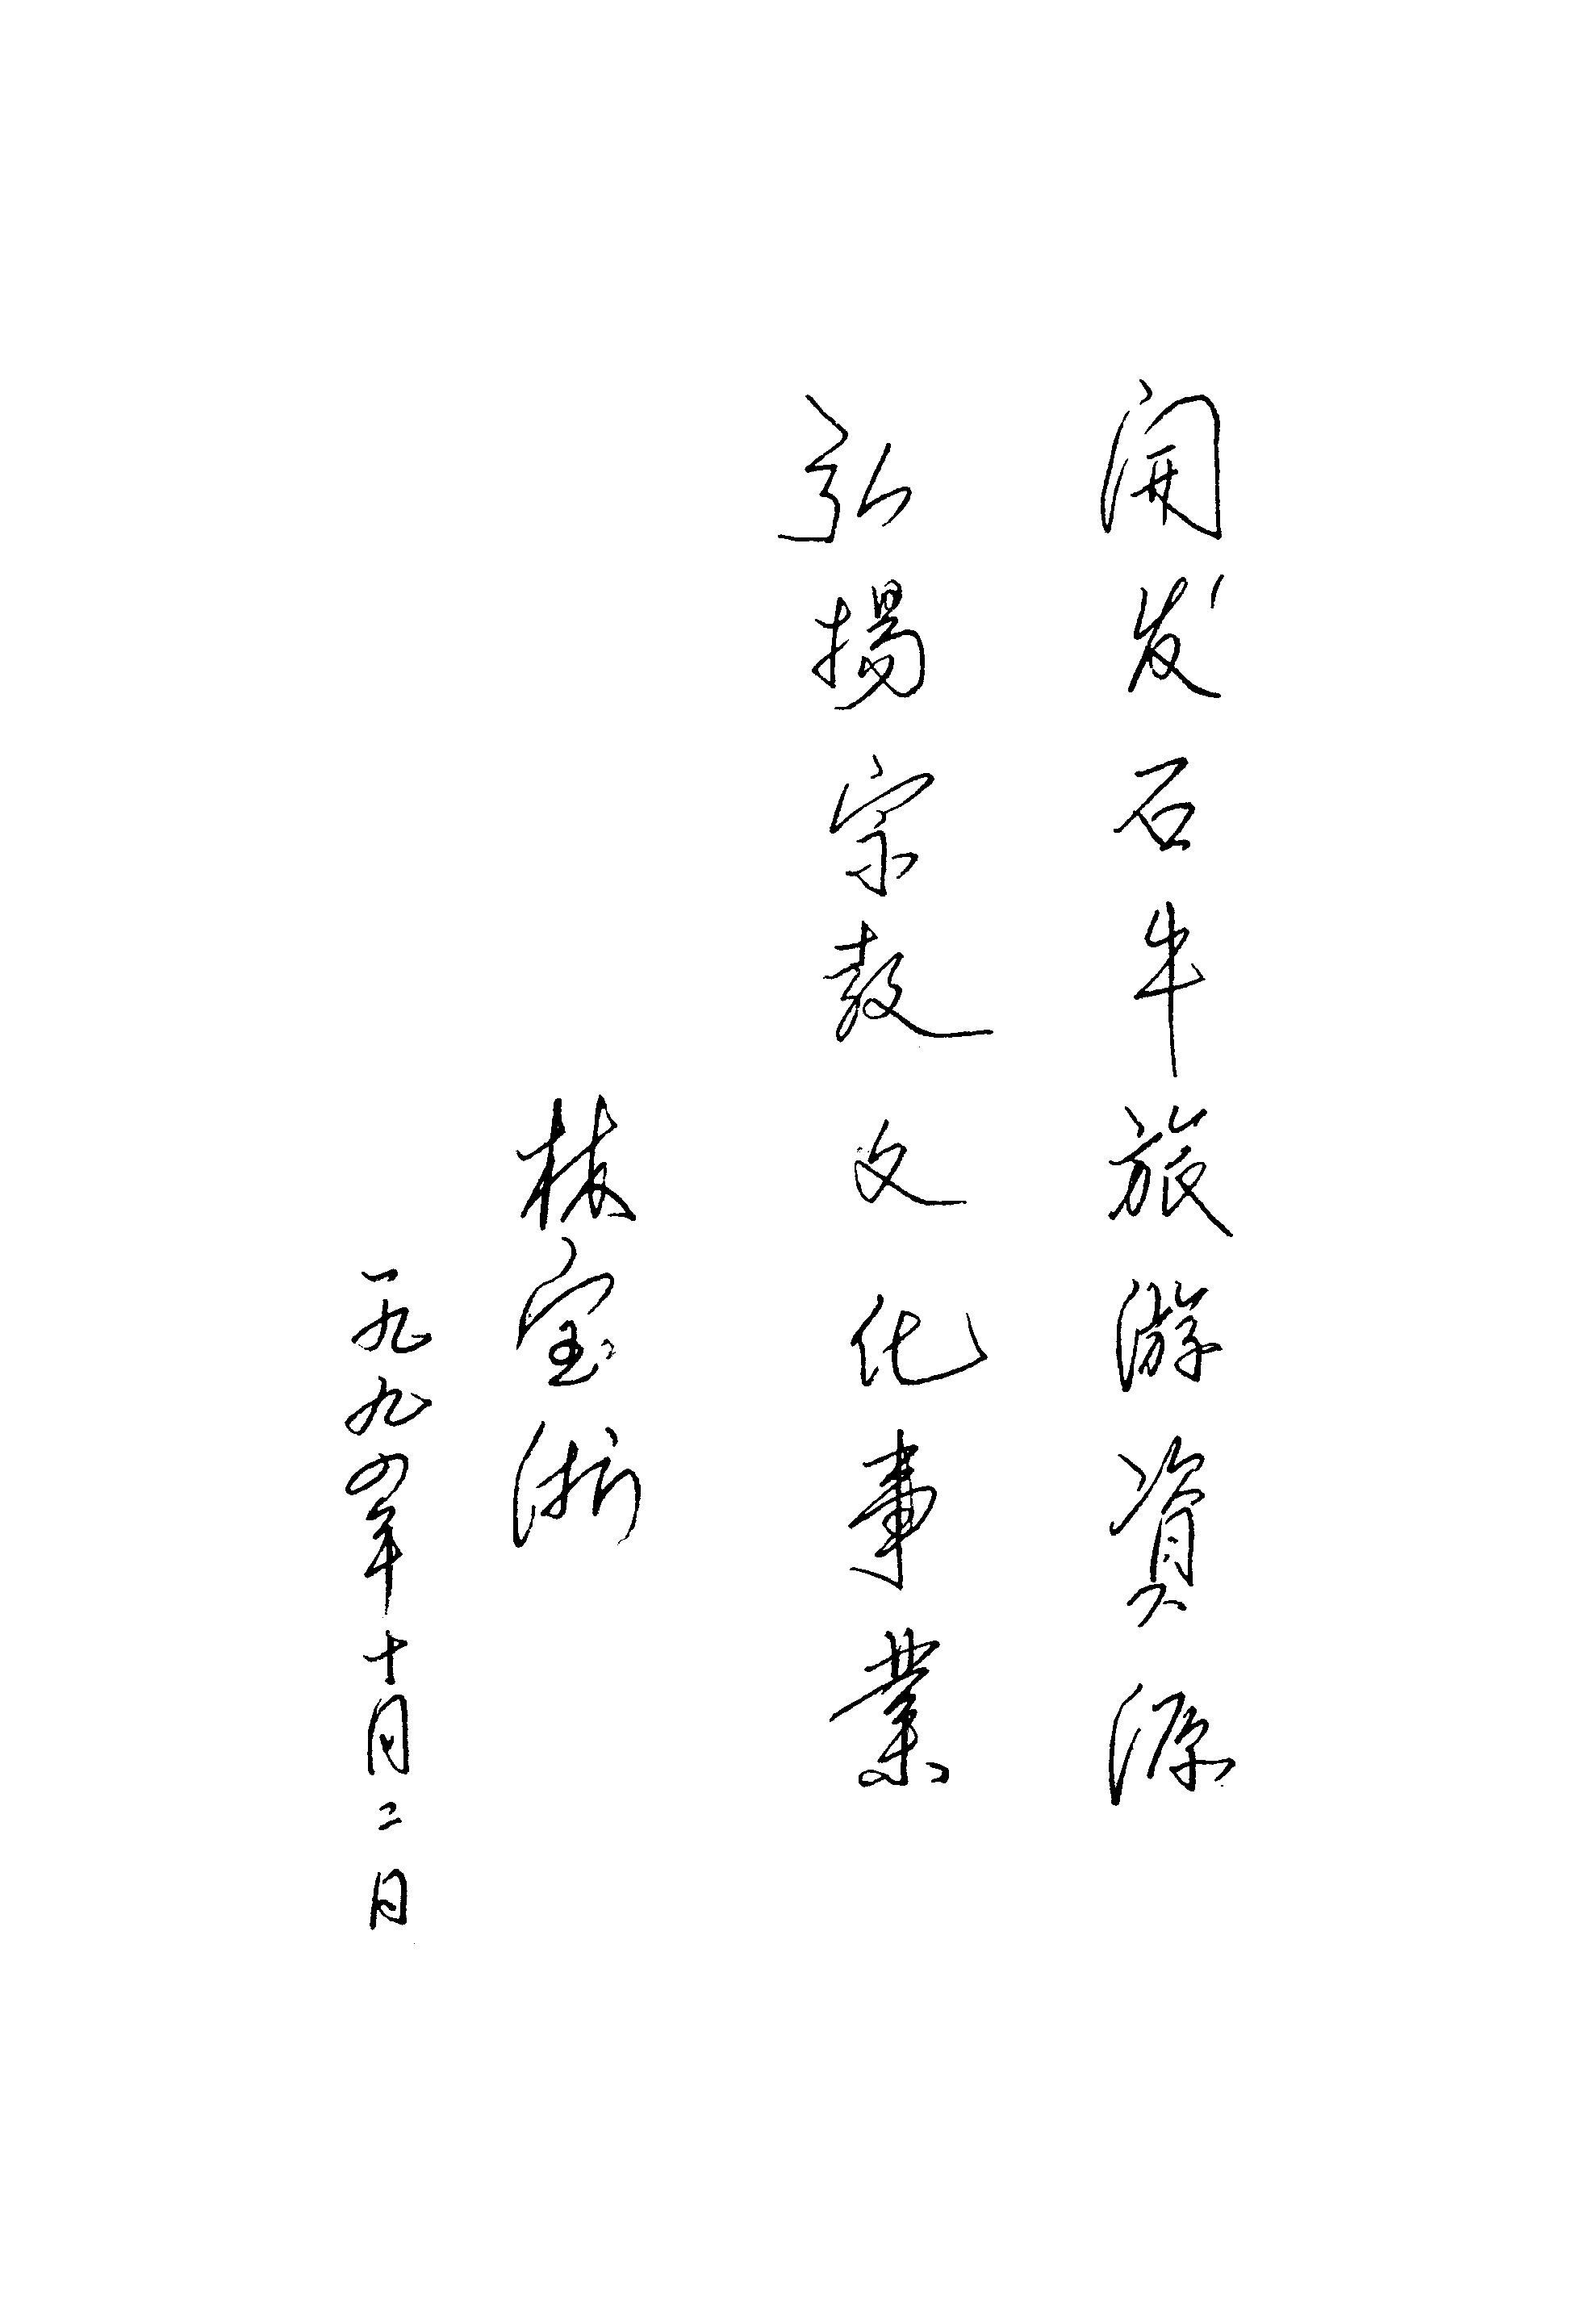 開发石牛旅游資源
弘揚宗教文化事業
林宝浙
一九九四年十月二日